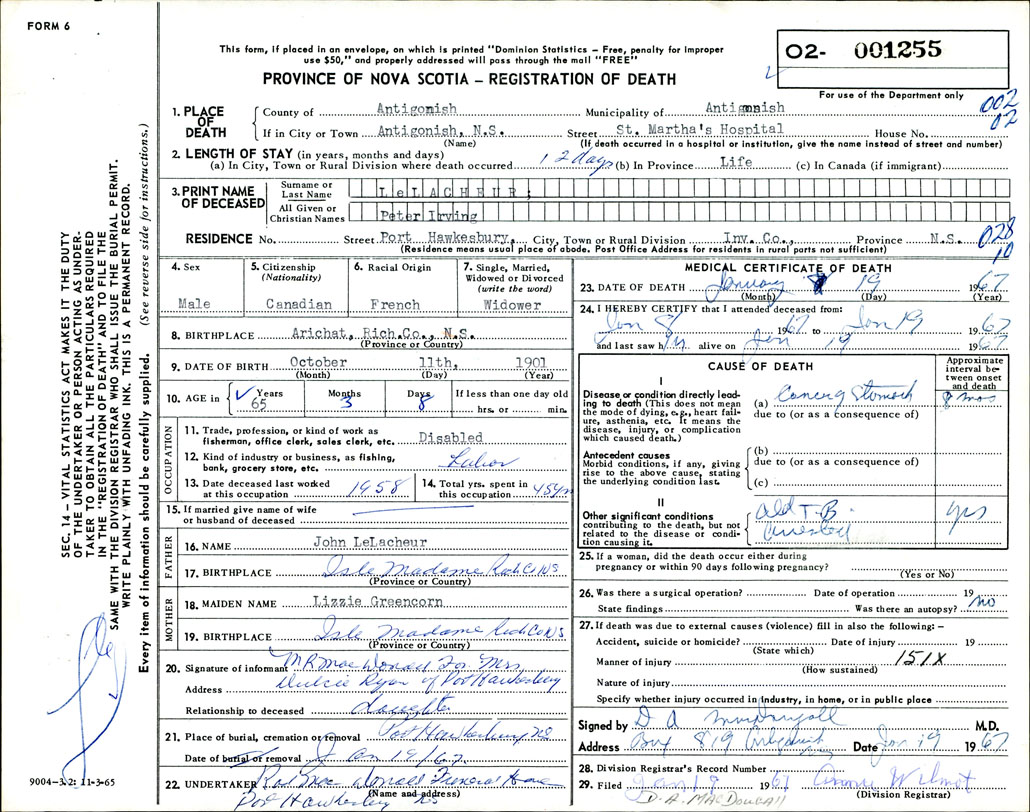 FORM 6
This form, if placed in an envelope, on which is printed "Dominion Statistics – Free, penalty for improper
use $50," and properly addressed will pass through the mail "FREE"
PROVINCE OF NOVA SCOTIA – REGISTRATION OF DEATH
02- 001255
For use of the Department only
002
02
1. PLACE OF DEATH
County of Antigonish Municipality of Antigonish
If in City or Town Antigonish, N.S. Street St. Martha's Hospital House No.
(Name) (If death occurred in a hospital or institution, give the name instead of street and number)
2. LENGTH OF STAY (in years, months and days)
(a) In City, Town or Rural Division where death occurred 12 days (b) In Province Life (c) In Canada (if immigrant)
3. PRINT NAME OF DECEASED
Surname or Last Name LeLACHEUR
All Given or Christian Names Peter Irving
RESIDENCE No. Street Port Hawkesbury, City, Town or Rural Division Inv. Co., Province N.S.
(Residence means usual place of abode. Post Office Address for residents in rural parts not sufficient)
028
10
4. Sex Male
5. Citizenship (Nationality) Canadian
6. Racial Origin French
7. Single, Married, Widowed or Divorced (write the word) Widower
8. BIRTHPLACE Arichat, Rich.Co., N.S.
(Province or Country)
9. DATE OF BIRTH October 11th, 1901
(Month) (Day) (Year)
10. AGE in Years 65 Months 3 Days 8 If less than one day old
hrs. or min.
OCCUPATION
11. Trade, profession, or kind of work as
fisherman, office clerk, sales clerk, etc. Disabled
12. Kind of industry or business, as fishing,
bank, grocery store, etc. Labor
13. Date deceased last worked
at this occupation 1958
14. Total yrs. spent in
this occupation 45 yrs
15. If married give name of wife
or husband of deceased
FATHER
16. NAME John LeLacheur
17. BIRTHPLACE Isle Madame Rich Co NS
(Province or Country)
MOTHER
18. MAIDEN NAME Lizzie Greencorn
19. BIRTHPLACE Isle Madame Rich Co NS
(Province or Country)
20. Signature of informant MR MacDonald For Mrs
Address Dulcie Ryan of Port Hawkesbury
Relationship to deceased daughter
21. Place of burial, cremation or removal Port Hawkesbury NS
Date of burial or removal Jan 19/67.
22. UNDERTAKER MacDonald Funeral Home
(Name and address)
Port Hawkesbury NS
9004-3.2: 11-3-65
SEC. 14 – VITAL STATISTICS ACT MAKES IT THE DUTY
OF THE UNDERTAKER OR PERSON ACTING AS UNDER-
TAKER TO OBTAIN ALL THE PARTICULARS REQUIRED
IN THE "REGISTRATION OF DEATH" AND TO FILE THE
SAME WITH THE DIVISION REGISTRAR WHO SHALL ISSUE THE BURIAL PERMIT.
WRITE PLAINLY WITH UNFADING INK. THIS IS A PERMANENT RECORD.
Every item of information should be carefully supplied. (See reverse side for instructions.)
MEDICAL CERTIFICATE OF DEATH
23. DATE OF DEATH January 19 1967
(Month) (Day) (Year)
24. I HEREBY CERTIFY that I attended deceased from:
Jan 8 1967 to Jan 19 1967
and last saw him alive on Jan 19 1967
CAUSE OF DEATH
Approximate interval between onset and death
I
Disease or condition directly lead-
ing to death (This does not mean
the mode of dying, e.g., heart fail-
ure, asthenia, etc. It means the
disease, injury, or complication
which caused death.)
(a) Cancer of Stomach 8 mos
due to (or as a consequence of)
Antecedent causes
Morbid conditions, if any, giving
rise to the above cause, stating
the underlying condition last.
(b)
due to (or as a consequence of)
(c)
II
Other significant conditions
contributing to the death, but not
related to the disease or condi-
tion causing it.
Old T.B. yrs
arrested
25. If a woman, did the death occur either during
pregnancy or within 90 days following pregnancy?
(Yes or No)
26. Was there a surgical operation? Date of operation 19
State findings Was there an autopsy? no
27. If death was due to external causes (violence) fill in also the following: –
Accident, suicide or homicide? Date of injury 19
(State which)
Manner of injury 151X
(How sustained)
Nature of injury
Specify whether injury occurred in industry, in home, or in public place
Signed by D A MacDougall M.D.
Address Box 819 Antigonish Date Jan 19 1967
28. Division Registrar's Record Number
29. Filed Jan 1967
(Division Registrar)
D. A. MacDOUGALL